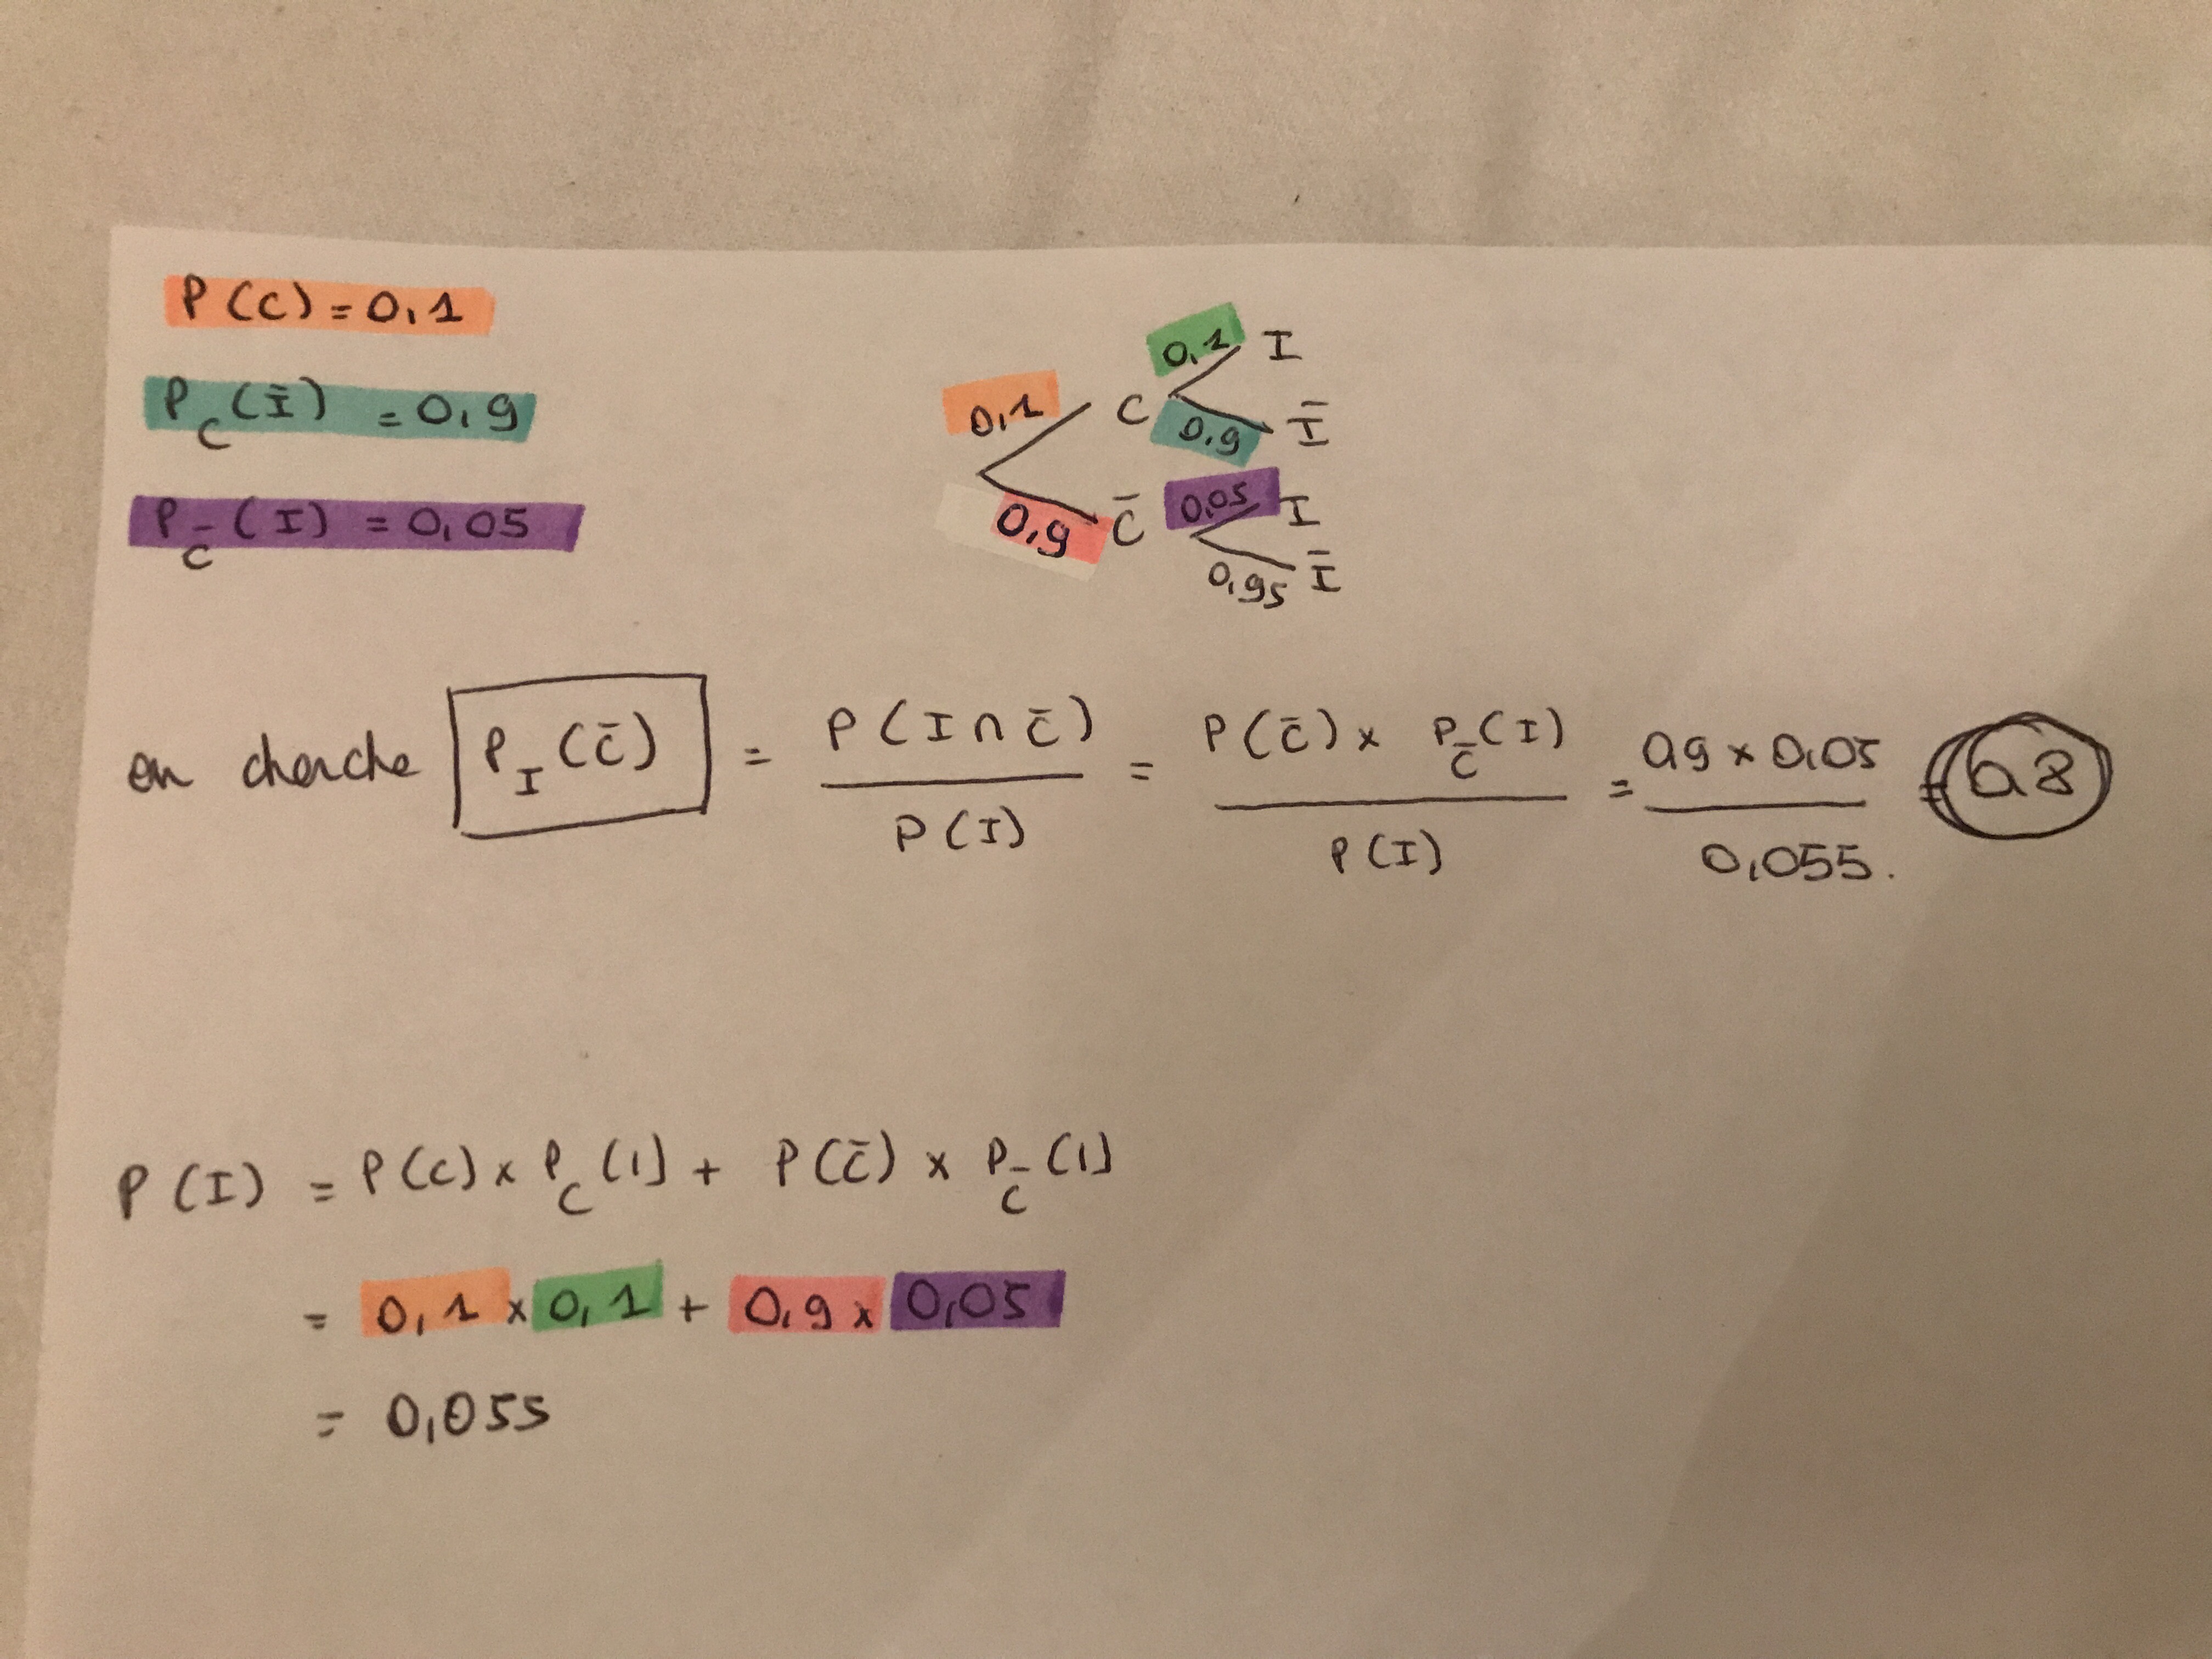 P(C) = 0,1
P_C(Ī) = 0,9
P_C̄(I) = 0,05
0,1 C 0,1 I
0,9 Ī
0,9 C̄ 0,05 I
0,95 Ī
on cherche P_I(C̄) = P(I ∩ C̄) / P(I) = P(C̄) × P_C̄(I) / P(I) = 0,9 × 0,05 / 0,055. = 0,8
P(I) = P(C) × P_C(I) + P(C̄) × P_C̄(I)
= 0,1 × 0,1 + 0,9 × 0,05
= 0,055